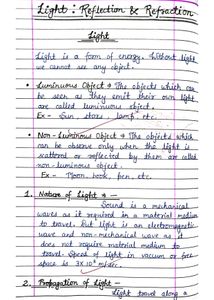 Light : Reflection & Refraction
Light
Light is a form of energy. Without light
we cannot see any object.
• Luminous Object → The objects which can
be seen as they emit their own light
are called luminous object.
Ex - Sun, stars, lamp, etc.
• Non-Luminous Object → The objects which
can be observe only when the light is
scattered or reflected by them are called
non-luminous object.
Ex - Moon, book, pen, etc.
1. Nature of Light →
Sound is a mechanical
waves as it required in a material medium
to travel. But light is an electromagnetic
wave and non-mechanical wave as it
does not require material medium to
travel. Speed of light in vacuum or free
space is 3×10⁸ m/sec.
2. Propagation of Light —
Light travel along a